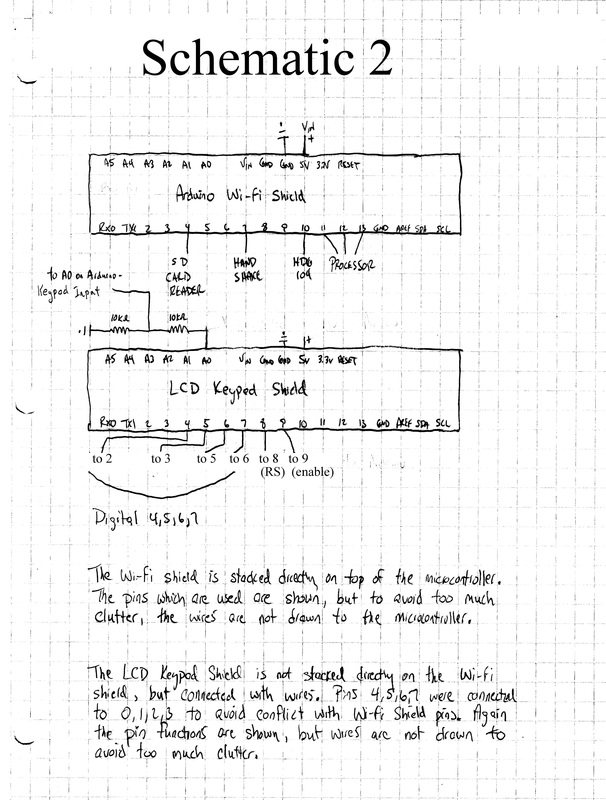 Schematic 2
Vin
+
A5 A4 A3 A2 A1 A0 Vin GND GND 5V 3.3V RESET
Arduino Wi-Fi Shield
RX0 TX1 2 3 4 5 6 7 8 9 10 11 12 13 GND AREF SDA SCL
SD CARD READER
HAND SHAKE
HDG 104
PROCESSOR
to A0 on Arduino-
Keypad Input
10kΩ 10kΩ
A5 A4 A3 A2 A1 A0 Vin GND GND 5V 3.3V RESET
LCD Keypad Shield
RX0 TX1 2 3 4 5 6 7 8 9 10 11 12 13 GND AREF SDA SCL
to 2 to 3 to 5 to 6 to 8 to 9
(RS) (enable)
Digital 4,5,6,7
The Wi-Fi shield is stacked directly on top of the microcontroller.
The pins which are used are shown, but to avoid too much
clutter, the wires are not drawn to the microcontroller.
The LCD Keypad Shield is not stacked directly on the Wi-Fi
shield, but connected with wires. Pins 4,5,6,7 were connected
to 0,1,2,3 to avoid conflict with Wi-Fi Shield pins. Again
the pin functions are shown, but wires are not drawn to
avoid too much clutter.